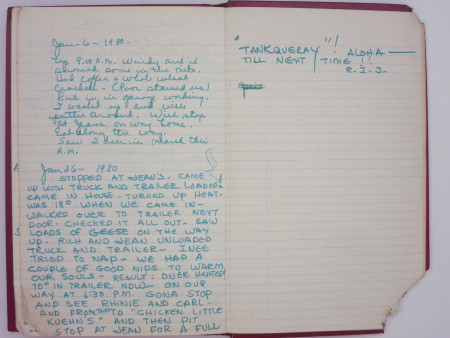 Jan-6-1980.
Up 9:00 A.M. Windy and it
stormed some in the nite.
Had coffee & whole wheat
crackers - (Poor starved us)
Rich is in garage working.
I washed up and will
putter around. Will stop
at Jeans on way home.
Eat along the way.
Saw 2 deer in marsh this
A.M.
Jan 26 - 1980
STOPPED AT JEAN'S. CAME
UP WITH TRUCK AND TRAILER LOADED.
CAME IN HOUSE - TURNED UP HEAT-
WAS 18° WHEN WE CAME IN-
WALKED OVER TO TRAILER NEXT
DOOR - CHECKED IT ALL OUT - SAW
LOADS OF GEESE ON THE WAY
UP - RICH AND JEAN UNLOADED
TRUCK AND TRAILER - INEE
TRIED TO NAP - WE HAD A
COUPLE OF GOOD NIPS TO WARM
OUR SOULS - RESULT: OVER HEATED!
70° IN TRAILER NOW - ON OUR
WAY AT 6:30 P.M. GONA STOP
AND SEE RHINIE AND CARL -
AND FROM TO "CHICKEN LITTLE
KUEHN'S" AND THEN PIT
STOP AT JEAN FOR A FULL
"TANKQUERAY"!! ALOHA
TILL NEXT TIME!!
R-I-J